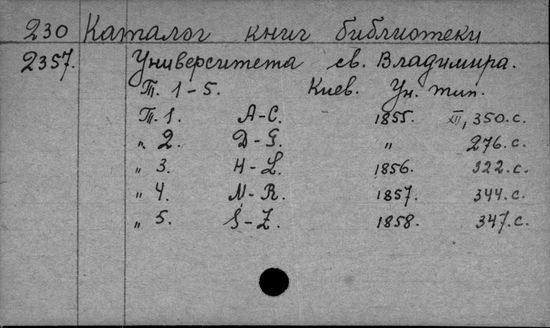 230 Каталог книг библиотеки
2357. Университета св. Владимира.
Т. 1-5. Киев. Ун. тип.
Т. 1. A-C. 1855. XII, 350. с.
„ 2. D-G. „ 276. с.
„ 3. H-L. 1856. 322. с.
„ 4. M-R. 1857. 344. с.
„ 5. S-Z. 1858. 347. с.